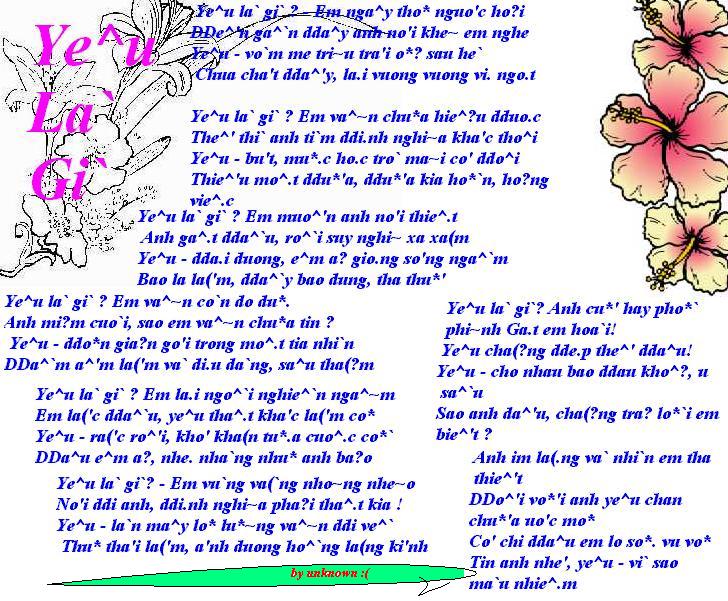 Ye^u
La`
Gi`
Ye^u la` gi` ? - Em nga^y tho* nguo'c ho?i
DDe^'n ga^`n dda^y anh no'i khe~ em nghe
Ye^u - vo`m me tri~u tra'i o*? sau he`
Chua cha't dda^'y, la.i vuong vuong vi. ngo.t
Ye^u la` gi` ? Em va^~n chu*a hie^?u dduo.c
The^' thi` anh ti`m ddi.nh nghi~a kha'c tho^i
Ye^u - bu't, mu*.c ho.c tro` ma~i co' ddo^i
Thie^'u mo^.t ddu*'a, ddu*'a kia ho*`n, ho?ng
vie^.c
Ye^u la` gi` ? Em muo^'n anh no'i thie^.t
Anh ga^.t dda^`u, ro^`i suy nghi~ xa xa(m
Ye^u - dda.i duong, e^m a? gio.ng so'ng nga^`m
Bao la la('m, dda^`y bao dung, tha thu*'
Ye^u la` gi` ? Em va^~n co`n do du*.
Anh mi?m cuo`i, sao em va^~n chu*a tin ?
Ye^u - ddo*n gia?n go'i trong mo^.t tia nhi`n
DDa^`m a^'m la('m va` di.u da`ng, sa^u tha(?m
Ye^u la` gi` ? Em la.i ngo^`i nghie^`n nga^~m
Em la('c dda^`u, ye^u tha^.t kha'c la('m co*
Ye^u - ra('c ro^'i, kho' kha(n tu*.a cuo^.c co*`
DDa^u e^m a?, nhe. nha`ng nhu* anh ba?o
Ye^u la` gi`? - Em vu`ng va(`ng nho~ng nhe~o
No'i ddi anh, ddi.nh nghi~a pha?i tha^.t kia !
Ye^u - la`n ma^y lo* lu*~ng va^~n ddi ve^`
Thu* tha'i la('m, a'nh duong ho^`ng la(ng ki'nh
Ye^u la` gi`? Anh cu*' hay pho*`
phi~nh Ga.t em hoa`i!
Ye^u cha(?ng dde.p the^' dda^u!
Ye^u - cho nhau bao ddau kho^?, u
sa^`u
Sao anh da^'u, cha(?ng tra? lo*`i em
bie^'t ?
Anh im la(.ng va` nhi`n em tha
thie^'t
DDo^'i vo*'i anh ye^u chan
chu*'a uo'c mo*
Co' chi dda^u em lo so*. vu vo*
Tin anh nhe', ye^u - vi` sao
ma`u nhie^.m
by unknown :(